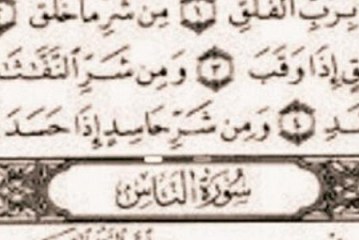 بِرَبِّ ٱلْفَلَقِ ١ مِن شَرِّ مَا خَلَقَ
إِذَا وَقَبَ ٣ وَمِن شَرِّ ٱلنَّفَّٰثَٰتِ
٤ وَمِن شَرِّ حَاسِدٍ إِذَا حَسَدَ
سُورَةُ النَّاسِ